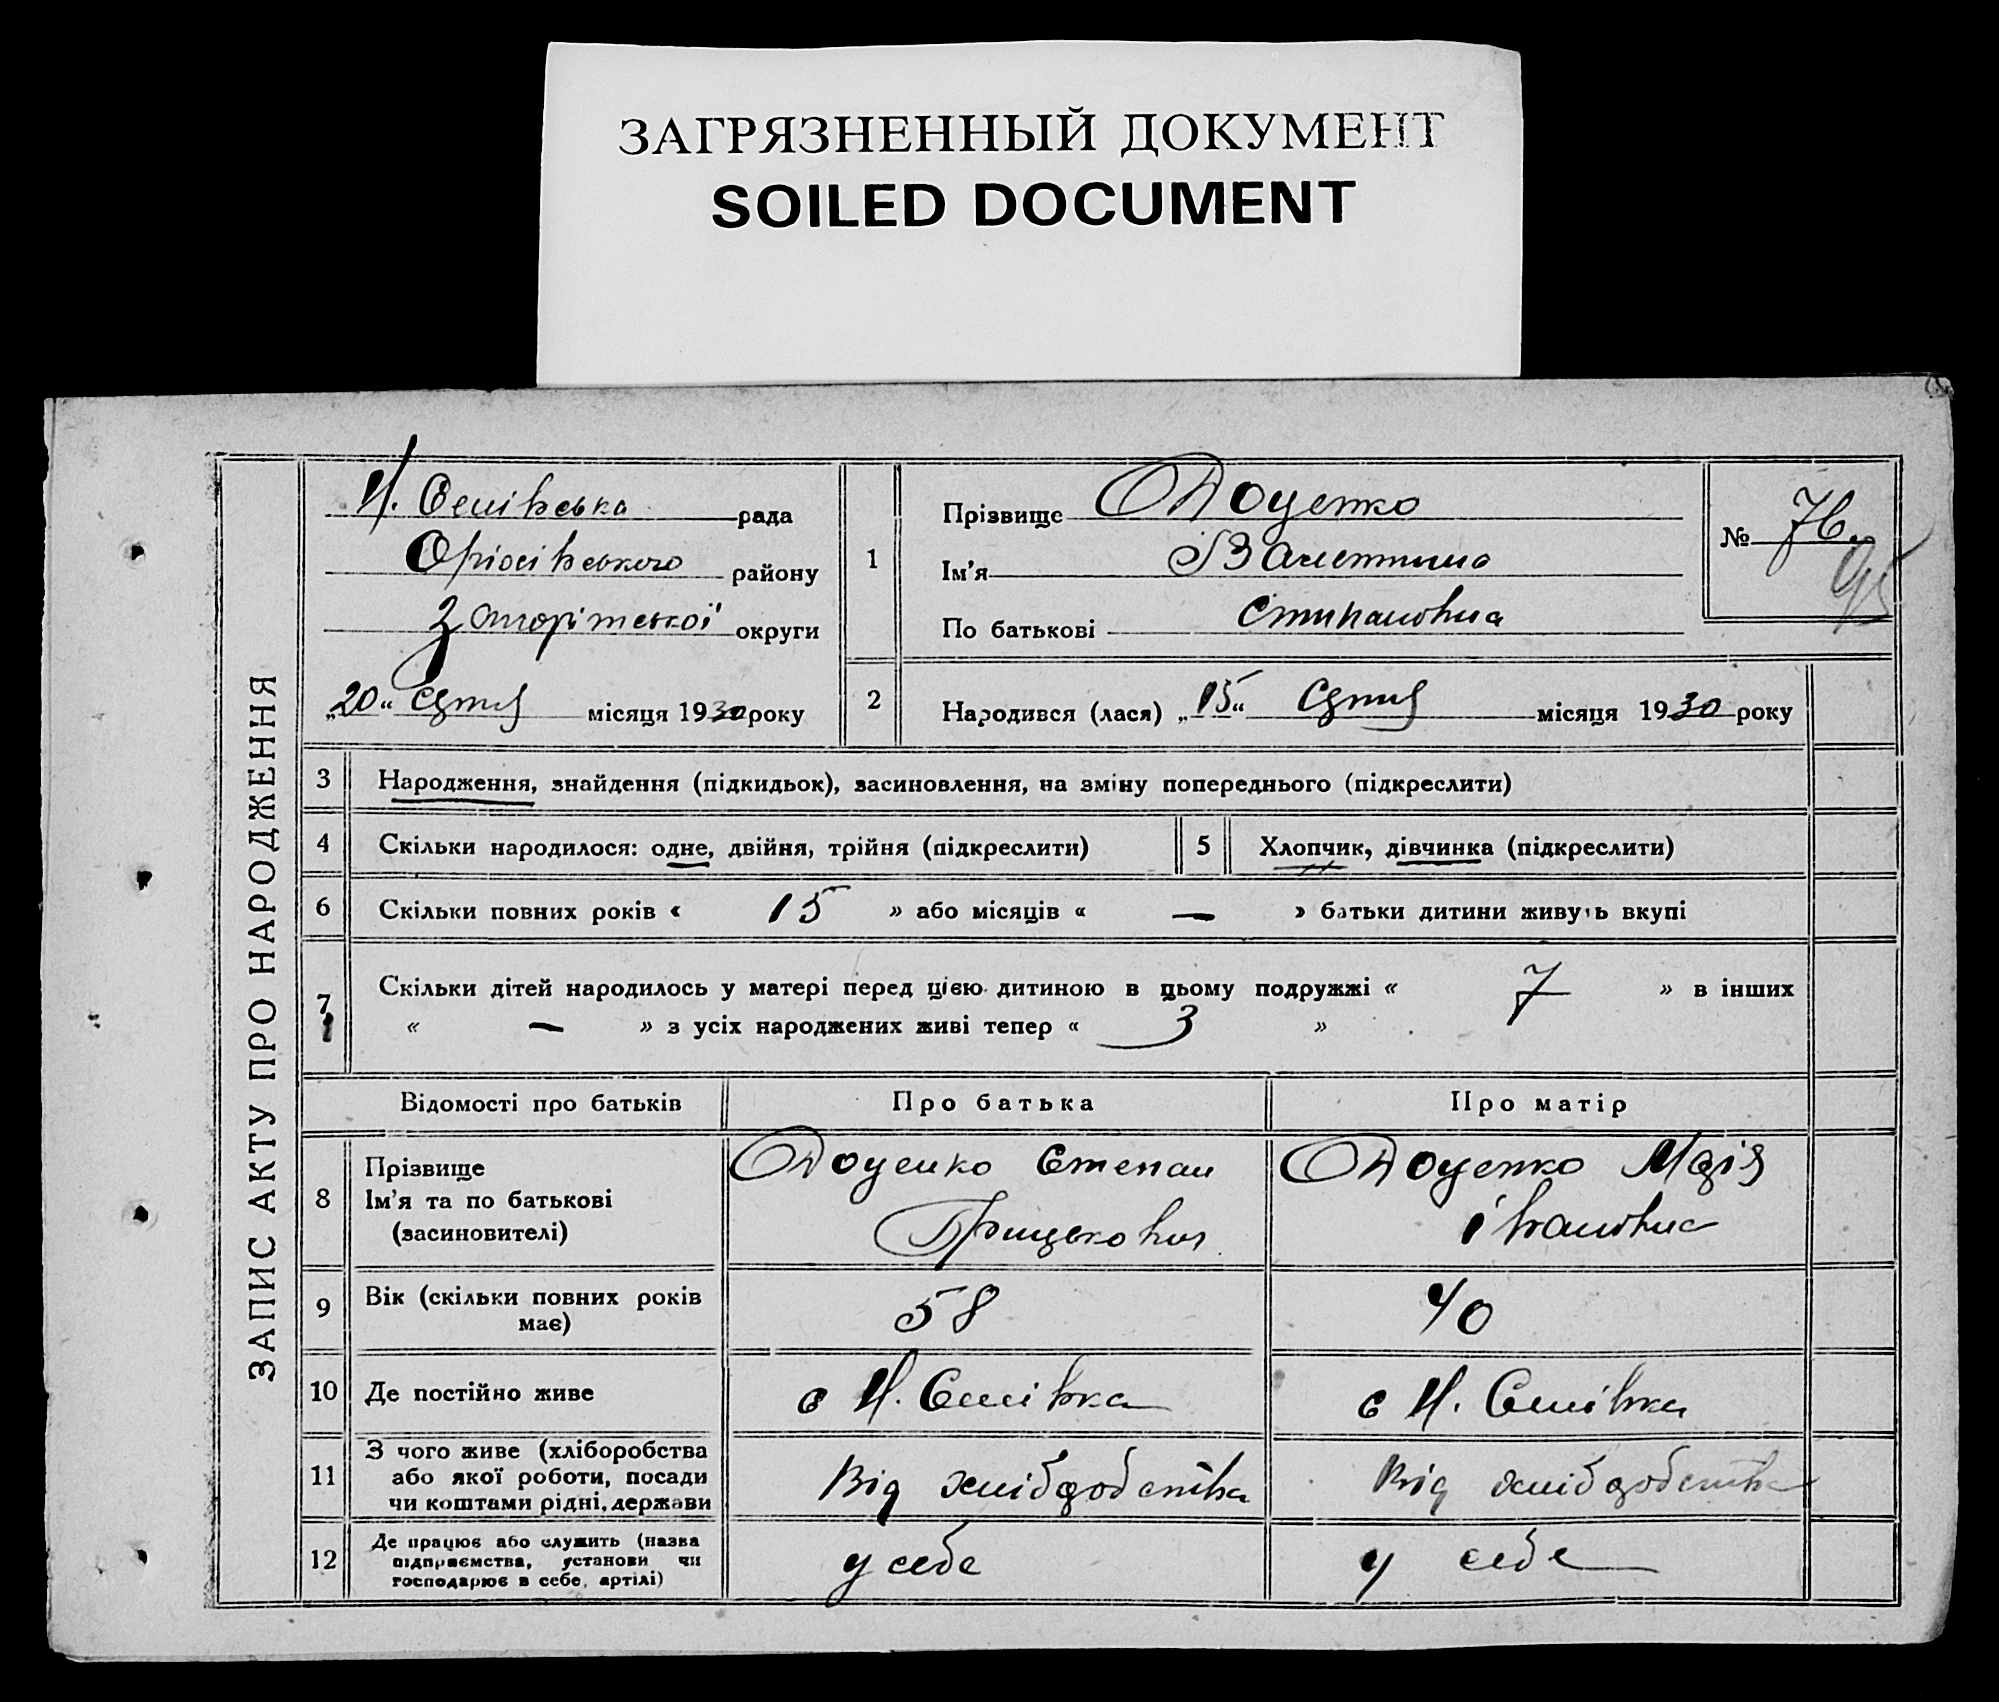 ЗАГРЯЗНЕННЫЙ ДОКУМЕНТ
SOILED DOCUMENT
ЗАПИС АКТУ ПРО НАРОДЖЕННЯ
рада
району
округи
„20“ місяця 1930 року
1
Прізвище Доценко
Ім'я Валентина
По батькові Степановна
№ 76
95
2
Народився (лася) „15“ місяця 1930 року
3 Народження, знайдення (підкидьок), засиновлення, на зміну попереднього (підкреслити)
4 Скільки народилося: одне, двійня, трійня (підкреслити) 5 Хлопчик, дівчинка (підкреслити)
6 Скільки повних років « 15 » або місяців « — » батьки дитини живуть вкупі
7 Скільки дітей народилось у матері перед цією дитиною в цьому подружжі « 7 » в інших
« — » з усіх народжених живі тепер « 3 »
Відомості про батьків Про батька Про матір
8 Прізвище Ім'я та по батькові (засиновителі) Доценко Степан Грицькович Доценко Марія Івановна
9 Вік (скільки повних років має) 58 40
10 Де постійно живе с Н. с Н.
11 З чого живе (хліборобства або якої роботи, посади чи коштами рідні, держави Від хлібробства Від хлібробства
12 Де працює або служить (назва підприємства, установи чи господарює в себе, артілі) у себе у себе